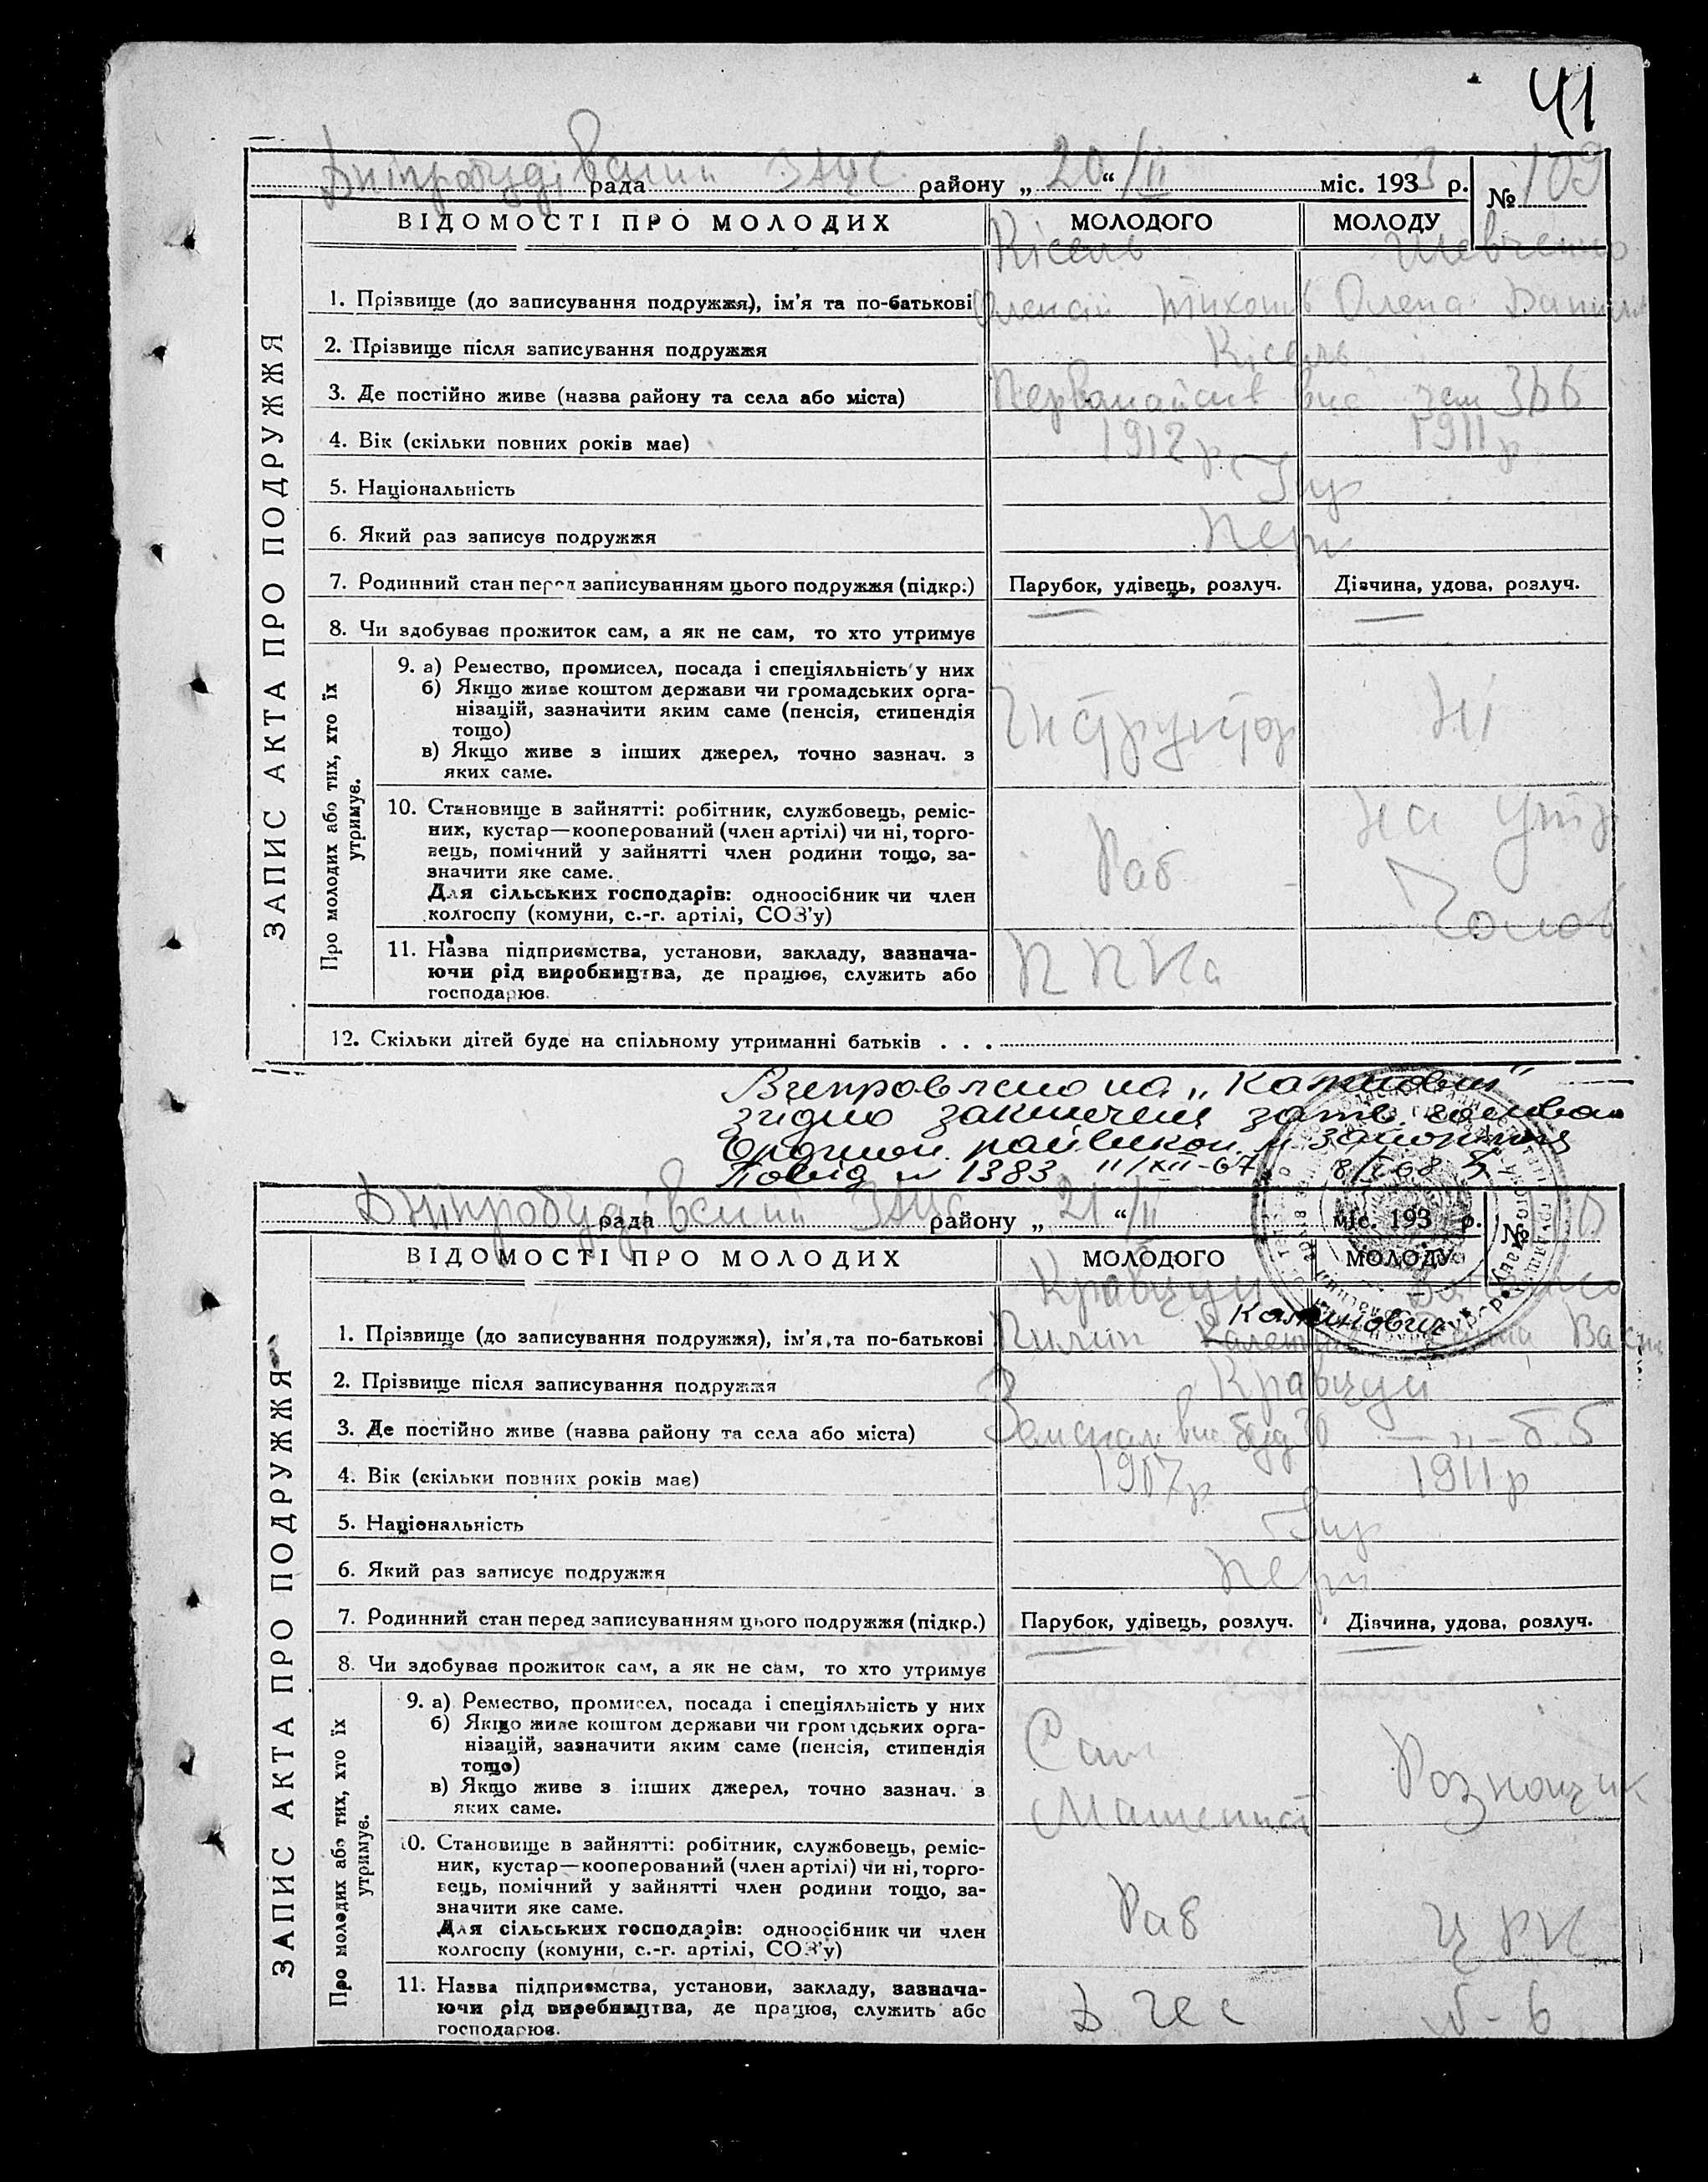 41
Дніпробудівський ЗАЦС
рада району „ 20 “ /II міс. 1933 р. № 109
ВІДОМОСТІ ПРО МОЛОДИХ МОЛОДОГО МОЛОДУ
ЗАПИС АКТА ПРО ПОДРУЖЖЯ
Кісель Шевченко
1. Прізвище (до записування подружжя), ім’я та по-батькові Олена
2. Прізвище після записування подружжя Кісель
3. Де постійно живе (назва району та села або міста)
4. Вік (скільки повних років має) 1912 р 1911 р
5. Національність Укр
6. Який раз записує подружжя Перш
7. Родинний стан перед записуванням цього подружжя (підкр.) Парубок, удівець, розлуч. Дівчина, удова, розлуч.
8. Чи здобуває прожиток сам, а як не сам, то хто утримує
Про молодих або тих, хто їх утримує.
9. а) Ремество, промисел, посада і спеціяльність у них
б) Якщо живе коштом держави чи громадських орга-
нізацій, зазначити яким саме (пенсія, стипендія
тощо)
в) Якщо живе з інших джерел, точно зазнач. з
яких саме.
Інструктор Ні
10. Становище в зайнятті: робітник, службовець, реміс-
ник, кустар—кооперований (член артілі) чи ні, торго-
вець, помічний у зайнятті член родини тощо, за-
значити яке саме.
Для сільських господарів: одноосібник чи член
колгоспу (комуни, с.-г. артілі, СОЗ’у)
Раб На утр
Чолов
11. Назва підприємства, установи, закладу, зазнача-
ючи рід виробництва, де працює, служить або
господарює.
12. Скільки дітей буде на спільному утриманні батьків . . .
Виправлено на „Калинович“
згідно заключення затв.
райвикон.
№ 1383 11/XII-67 8/I 68
Дніпробудівський ЗАЦС
рада району „ 21 “ /II міс. 193 р. №
ВІДОМОСТІ ПРО МОЛОДИХ МОЛОДОГО МОЛОДУ
ЗАПИС АКТА ПРО ПОДРУЖЖЯ
Кравцун
Калинович
1. Прізвище (до записування подружжя), ім’я та по-батькові Пилип
2. Прізвище після записування подружжя Кравцун
3. Де постійно живе (назва району та села або міста)
4. Вік (скільки повних років має) 1907 р 1911 р
5. Національність Укр
6. Який раз записує подружжя Перш
7. Родинний стан перед записуванням цього подружжя (підкр.) Парубок, удівець, розлуч. Дівчина, удова, розлуч.
8. Чи здобуває прожиток сам, а як не сам, то хто утримує
Про молодих або тих, хто їх утримує.
9. а) Ремество, промисел, посада і спеціяльність у них
б) Якщо живе коштом держави чи громадських орга-
нізацій, зазначити яким саме (пенсія, стипендія
тощо)
в) Якщо живе з інших джерел, точно зазнач. з
яких саме.
Сам Рознощик
Машеніст
10. Становище в зайнятті: робітник, службовець, реміс-
ник, кустар—кооперований (член артілі) чи ні, торго-
вець, помічний у зайнятті член родини тощо, за-
значити яке саме.
Для сільських господарів: одноосібник чи член
колгоспу (комуни, с.-г. артілі, СОЗ’у)
Раб ЦРК
11. Назва підприємства, установи, закладу, зазнача-
ючи рід виробництва, де працює, служить або
господарює.